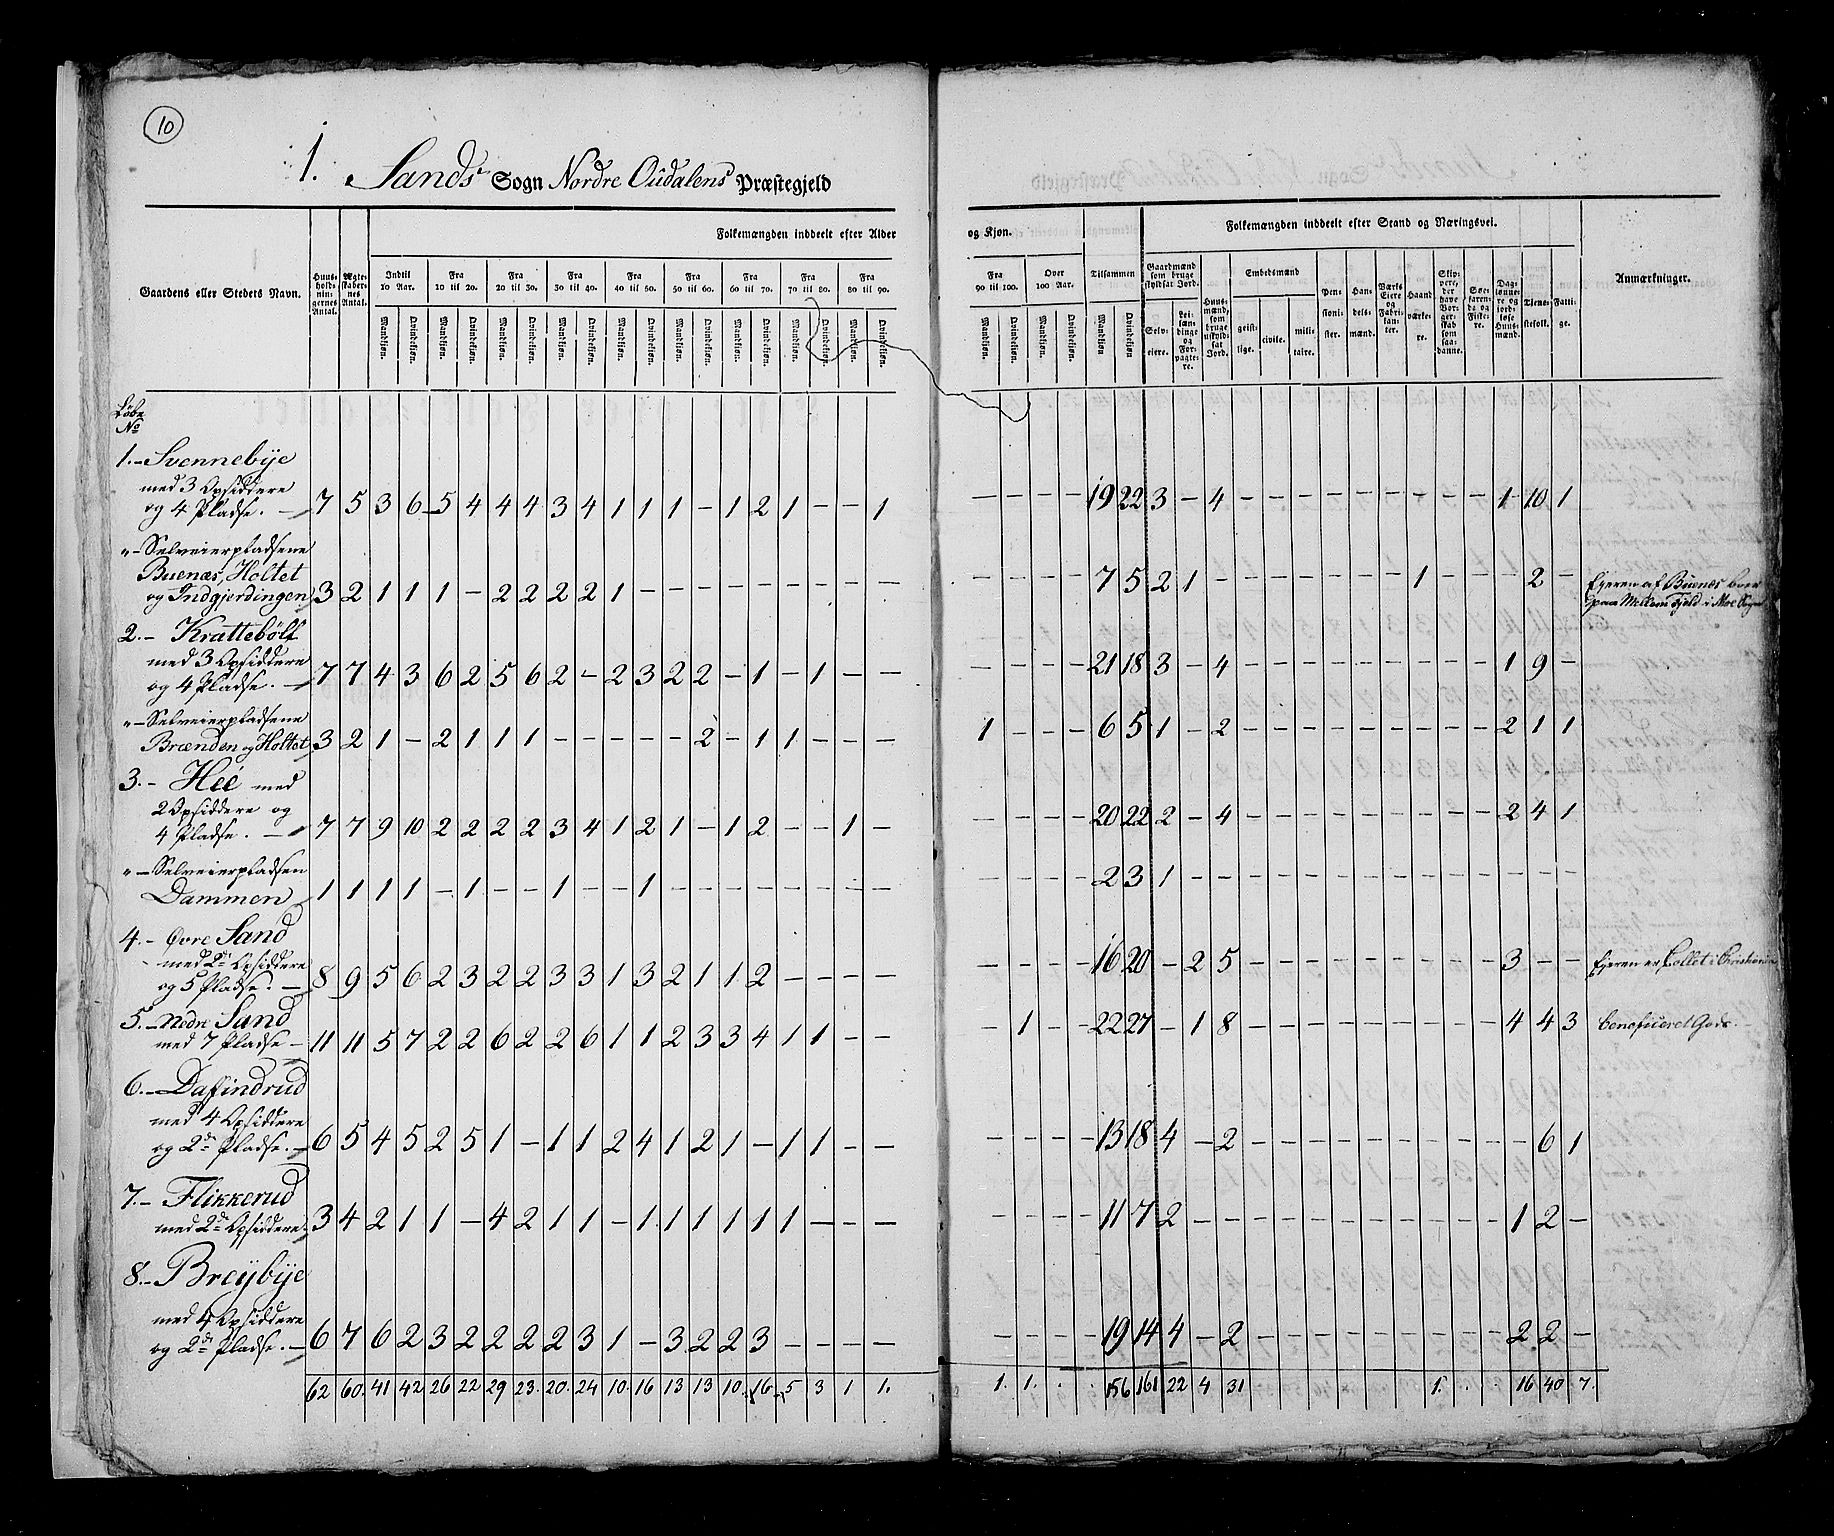 10
1. Sands Sogn Nordre Oudalens Præstegjeld
Gaardens eller Steders Navn.
Huus-holdnin-gernes Antal.
Ægte-skaber-nes Antal.
Folkemængden inddeelt efter Alder og Kjøn.
Indtil 10 Aar. Fra 10 til 20. Fra 20 til 30. Fra 30 til 40. Fra 40 til 50. Fra 50 til 60. Fra 60 til 70. Fra 70 til 80. Fra 80 til 90. Fra 90 til 100. Over 100 Aar. Tilsammen
Mandkjøn. Qvindekjøn. Mandkjøn. Qvindekjøn. Mandkjøn. Qvindekjøn. Mandkjøn. Qvindekjøn. Mandkjøn. Qvindekjøn. Mandkjøn. Qvindekjøn. Mandkjøn. Qvindekjøn. Mandkjøn. Qvindekjøn. Mandkjøn. Qvindekjøn. Mandkjøn. Qvindekjøn. Mandkjøn. Qvindekjøn. Mandkjøn Qvindekjøn
Folkemængden inddeelt efter Stand og Næringsvei.
Gaardmænd som bruge skyldsat Jord.
Selv-eiere.
Lei-læn-dinge og For-pagte-re.
Huus-mænd, som bruge uskyld-sat Jord.
Embedsmænd
geist-lige. civile. mili-taire.
Pen-sioni-ster.
Han-dels-mænd.
Værks Eiere og Fabri-kan-ter.
Haand værke-re.
Skip-pere, der have Bor-ger-skab som saa-danne.
Søe-faren-de og Fiske-re.
Dag-lønne-re og jord-løse Huus-mænd.
Tjene-stefolk.
Fatti-ge.
Anmærkninger.
Løbe
No
1.- Svennebÿe
med 3 Opsiddere
og 4 Pladse. - 7 5 3 6 5 4 4 4 3 4 1 1 1 - 1 2 1 - - 1 - - - - 19 22 3 - 4 - - - - - - - - - 1 10 1
"- Selveierpladsene
Buenæs, Holtet
og Indgjerdingen 3 2 1 1 1 - 2 2 2 2 1 - - - - - - - - - - - - - 7 5 2 1 - - - - - - - 1 - - - 2 - Ejeren af Buenæs boer
paa Mellem Fjeld i Moe Sogn
2.- Krattebøll
med 3 Opsiddere
og 4 Pladse. - 7 7 4 3 6 2 5 6 2 - 2 3 2 2 - 1 - 1 - - - - - - 21 18 3 - 4 - - - - - - - - - 1 9 -
"- Selveierpladsene
Brænden og Holtet 3 2 1 - 2 1 1 1 - - - - - 2 - 1 1 - - - 1 - - - 6 5 1 - 2 - - - - - - - - - 2 1 1
3.- Heé med
2 Opsiddere og
4 Pladse. - 7 7 9 10 2 2 2 2 3 4 1 2 1 - 1 2 - - 1 - - - - - 20 22 2 - 4 - - - - - - - - - 2 4 1
"- Selveierpladsen
Dammen 1 1 1 1 - 1 - - 1 - - 1 - - - - - - - - - - - - 2 3 1 - - - - - - - - - - - - - -
4.- Øvre Sand
med 2de Opsiddere
og 5 Pladse. - 8 9 5 6 2 3 2 2 3 3 1 3 2 1 1 2 - - - - - - - - 16 20 - 2 5 - - - - - - - - - 3 - - Ejeren er Collet i Christiania
5.- Nedre Sand
med 7 Pladse - 11 11 5 7 2 2 6 2 2 6 1 1 2 3 3 4 1 1 - - - 1 - - 22 27 - 1 8 - - - - - - - - - 4 4 3 beneficeret Gods.
6.- Dafindrud
med 4 Opsiddere
og 2de Pladse. - 6 5 4 5 2 5 1 - 1 1 2 4 1 2 1 - 1 1 - - - - - - 13 18 4 - 2 - - - - - - - - - - 6 1
7.- Flikkerud
med 2de Opsiddere 3 4 2 1 1 - 4 2 1 1 - 1 1 1 1 1 1 - - - - - - - 11 7 2 - - - - - - - - - - - 1 2 -
8.- Breÿbÿe
med 4 Opsiddere
og 2de Pladse. - 6 7 6 2 3 2 2 2 2 3 1 - 3 2 2 3 - - - - - - - - 19 14 4 - 2 - - - - - - - - - 2 2 -
62 60. 41 42 26 22 29 23. 20. 24 10. 16 13 13 10. 16 5 3 1 1. 1. 1. 156 161 22 4 31 1. 16 40 7.